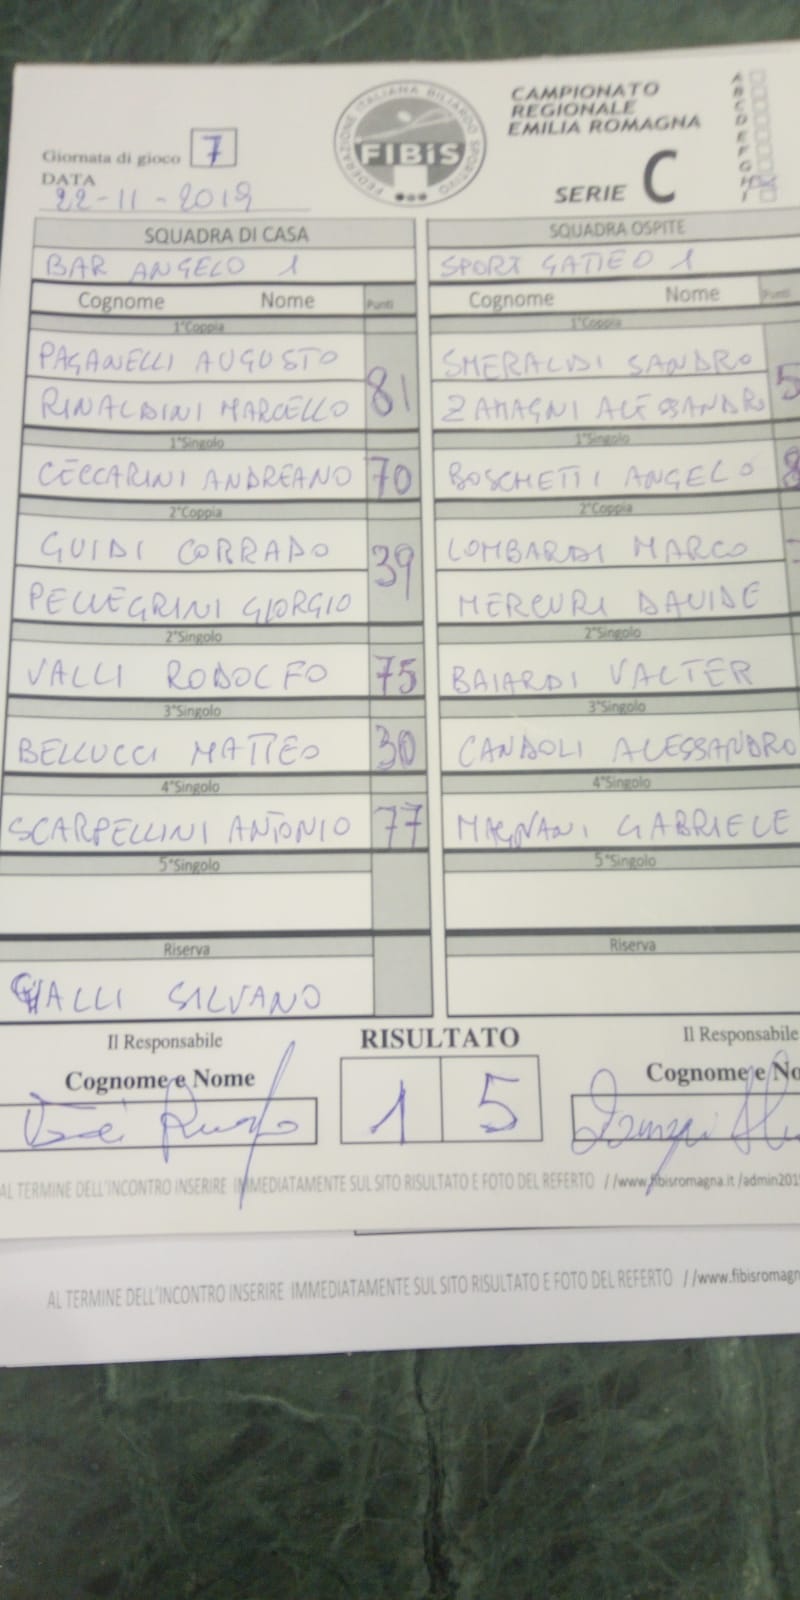 FEDERAZIONE ITALIANA BILIARDO SPORTIVO
FIBiS
CAMPIONATO
REGIONALE
EMILIA ROMAGNA
SERIE C
A
B
C
D
E
F
G
H
I
Giornata di gioco 7
DATA
22-11-2019
SQUADRA DI CASA
SQUADRA OSPITE
BAR ANGELO 1
SPORT GATTEO 1
Cognome Nome Punti
Cognome Nome Punti
1°Coppia
1°Coppia
PAGANELLI AUGUSTO
SMERALDI SANDRO
81
5
RINALDINI MARCELLO
ZAMAGNI ALESSANDRO
1°Singolo
1°Singolo
CECCARINI ANDREANO 70
BOSCHETTI ANGELO 8
2°Coppia
2°Coppia
GUIDI CORRADO
LOMBARDI MARCO
39
PELLEGRINI GIORGIO
MERCURI DAVIDE
2°Singolo
2°Singolo
VALLI RODOLFO 75
BAIARDI VALTER
3°Singolo
3°Singolo
BELLUCCI MATTEO 30
CANDOLI ALESSANDRO
4°Singolo
4°Singolo
SCARPELLINI ANTONIO 77
MAGNANI GABRIELE
5°Singolo
5°Singolo
Riserva
Riserva
GALLI SILVANO
Il Responsabile
RISULTATO
Il Responsabile
Cognome e Nome
1 5
Cognome e No
AL TERMINE DELL'INCONTRO INSERIRE IMMEDIATAMENTE SUL SITO RISULTATO E FOTO DEL REFERTO //www.fibisromagna.it/admin201
AL TERMINE DELL'INCONTRO INSERIRE IMMEDIATAMENTE SUL SITO RISULTATO E FOTO DEL REFERTO //www.fibisromagn